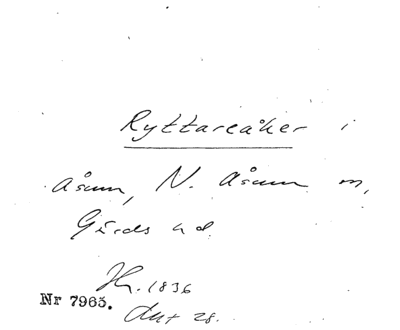 Ryttareåker i
Åsum, N. Åsum m,
Gärds hd
1836
Nr 7965.
28.